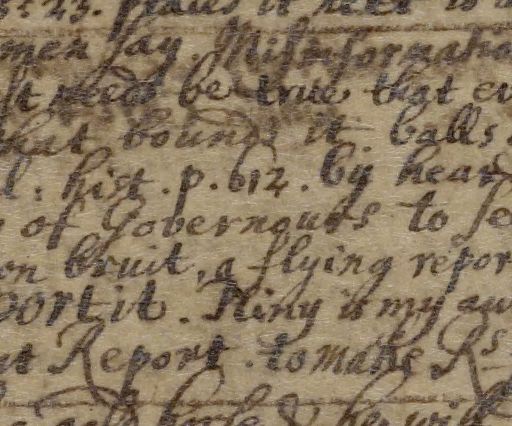 : 23. states it
men say. Misinformatio
st needs be true that ev
that bounds it balls.
l: hist. p. 612. by hear
of Governours to se
on bruit, a flying repor
port it. Pliny is my au
ut Report. to make Rs